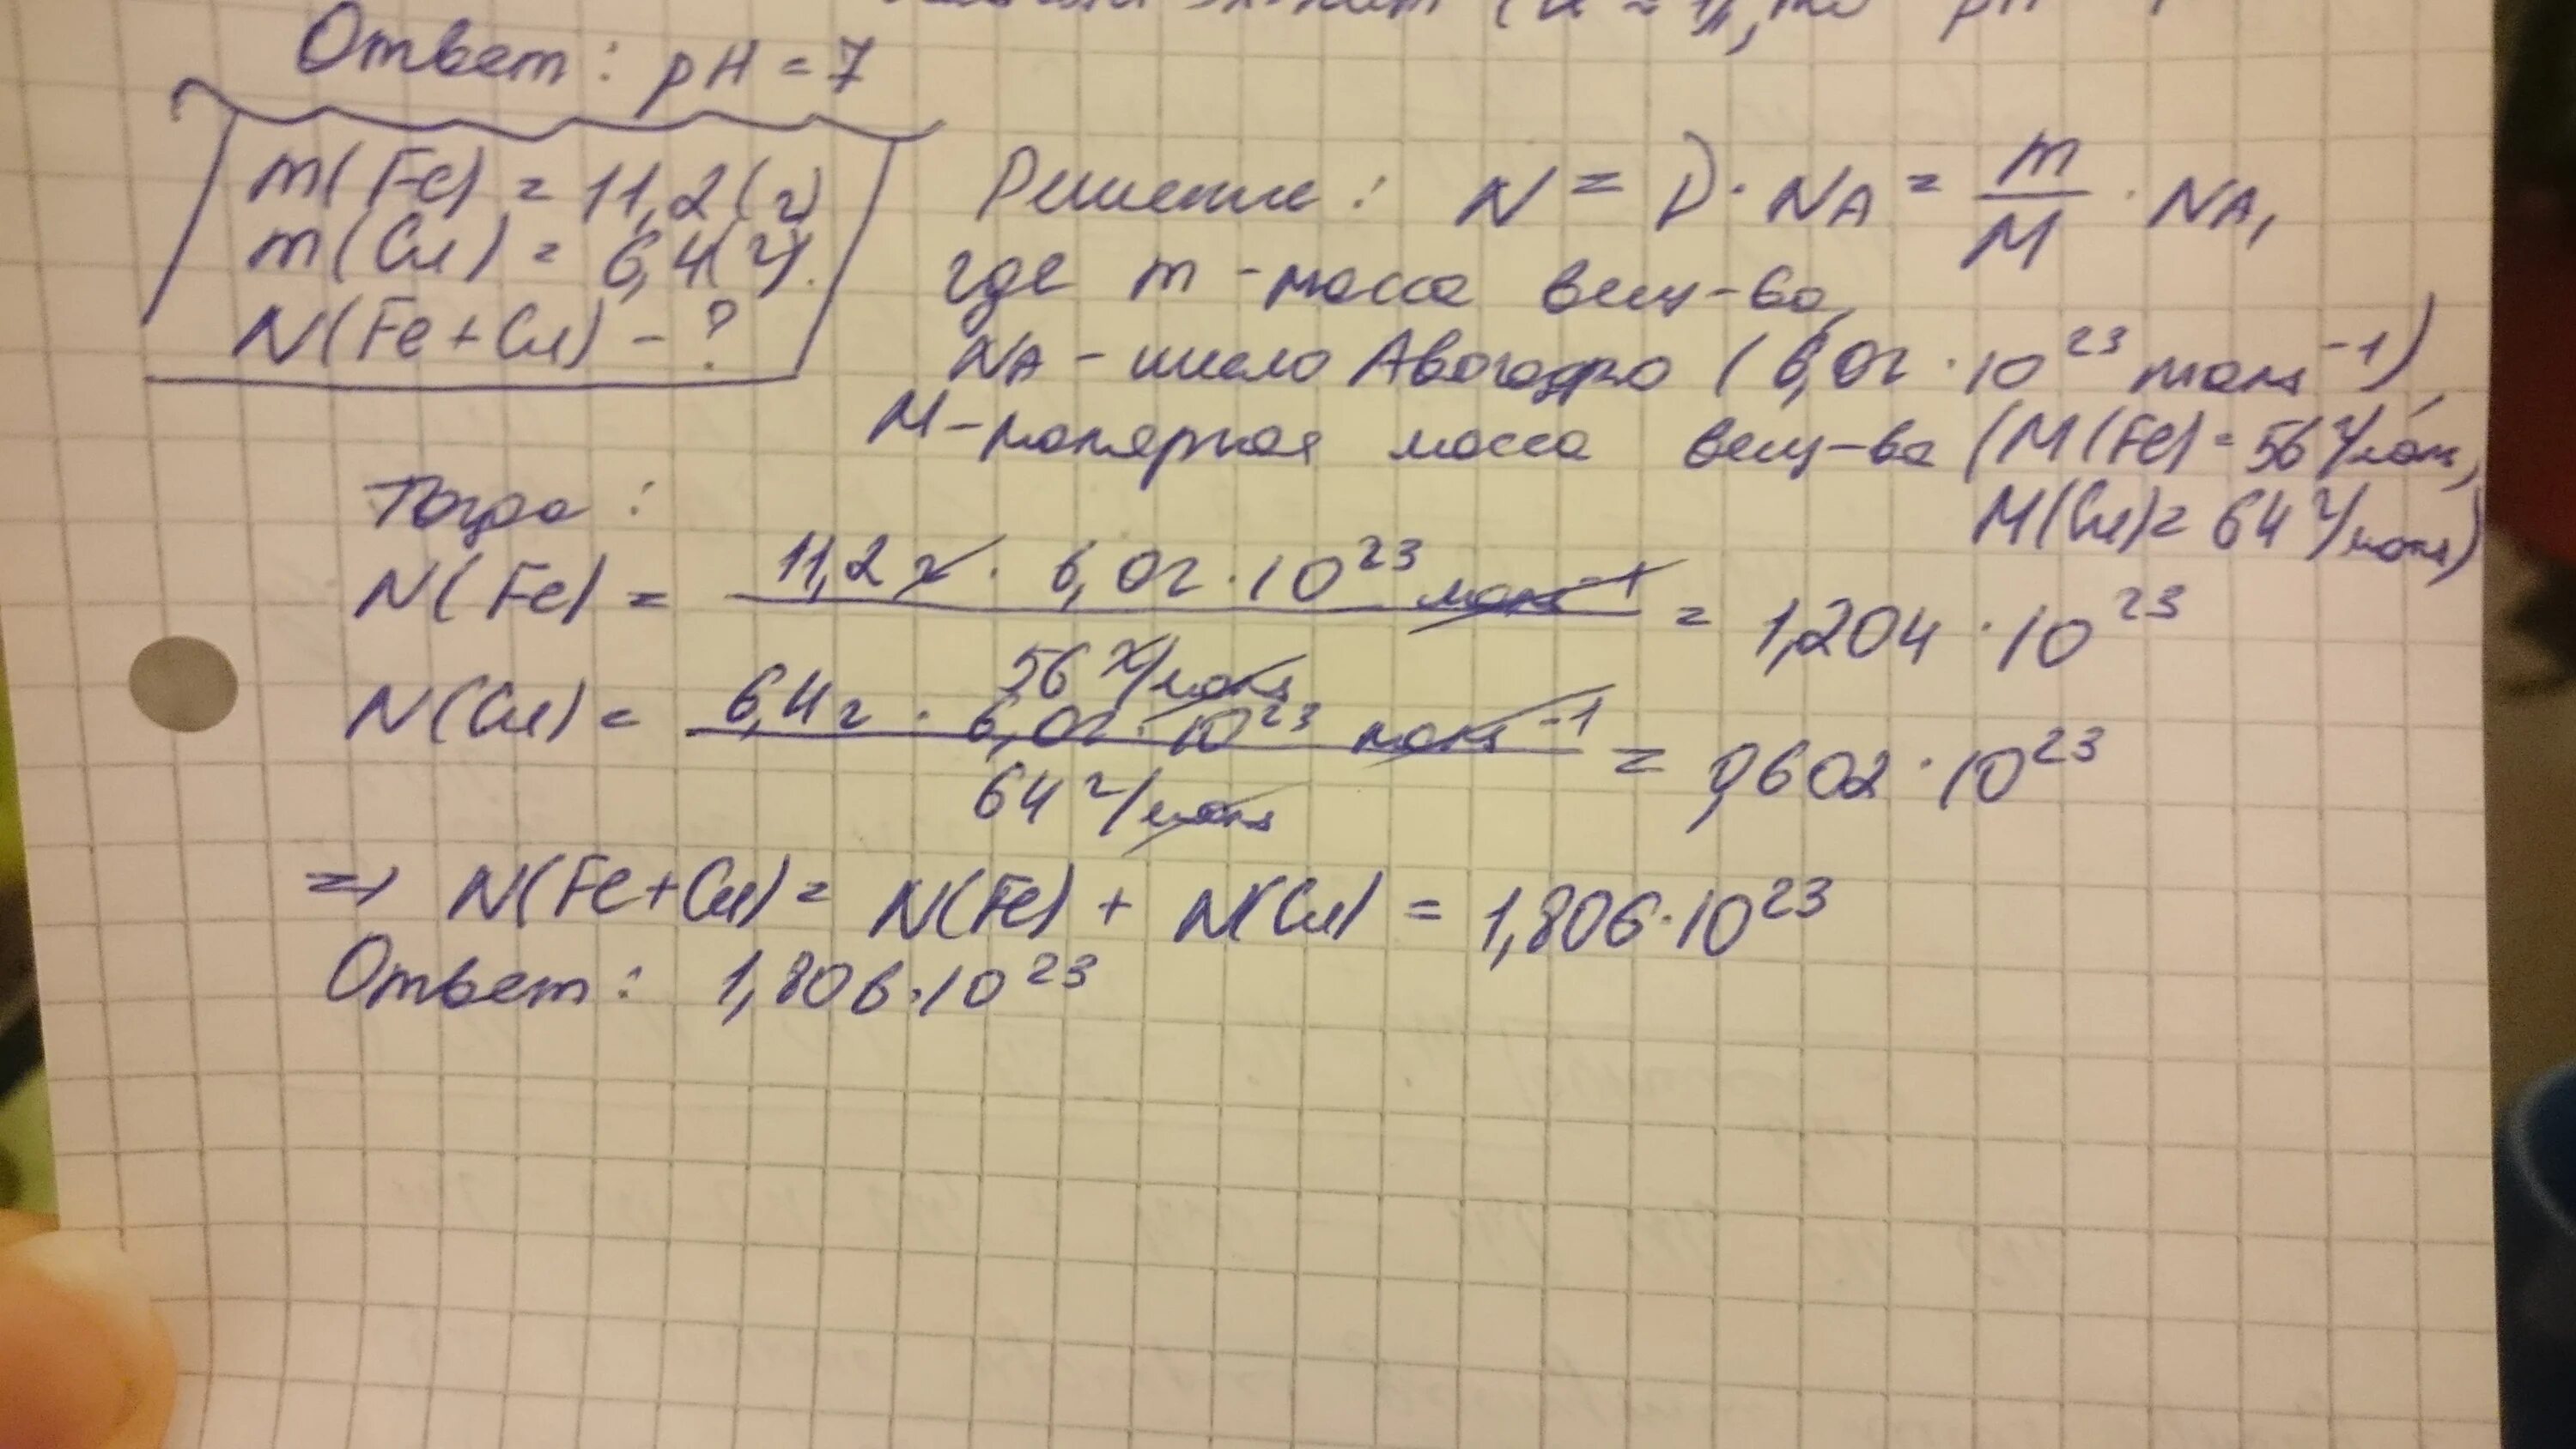 pH
Ответ: pH = 7
m(Fe) = 11,2(г)
m(Cu) = 6,4(г).
N(Fe+Cu) - ?
Решение: N = ν · NA = m/M · NA,
где m - масса вещ-ва,
NA - число Авогадро (6,02 · 10^23 моль^-1),
M - молярная масса вещ-ва (M(Fe) = 56 г/моль,
M(Cu) = 64 г/моль)
Тогда:
N(Fe) = 11,2 г · 6,02 · 10^23 моль^-1 / 56 г/моль = 1,204 · 10^23
N(Cu) = 6,4 г · 6,02 · 10^23 моль^-1 / 64 г/моль = 0,602 · 10^23
=> N(Fe+Cu) = N(Fe) + N(Cu) = 1,806 · 10^23
Ответ: 1,806 · 10^23